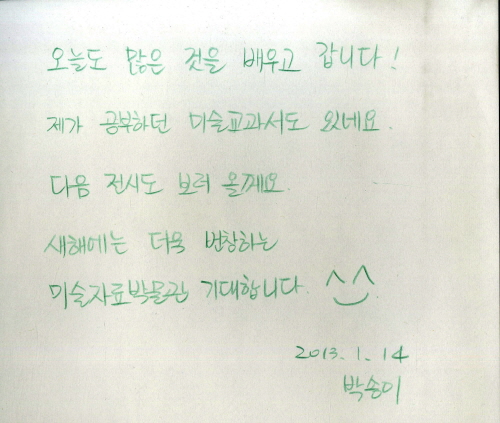 오늘도 많은 것을 배우고 갑니다!
제가 공부하던 미술교과서도 있네요.
다음 전시도 보러 올께요.
새해에는 더욱 번창하는
미술자료박물관 기대합니다. ^^
2013. 1. 14
박송이